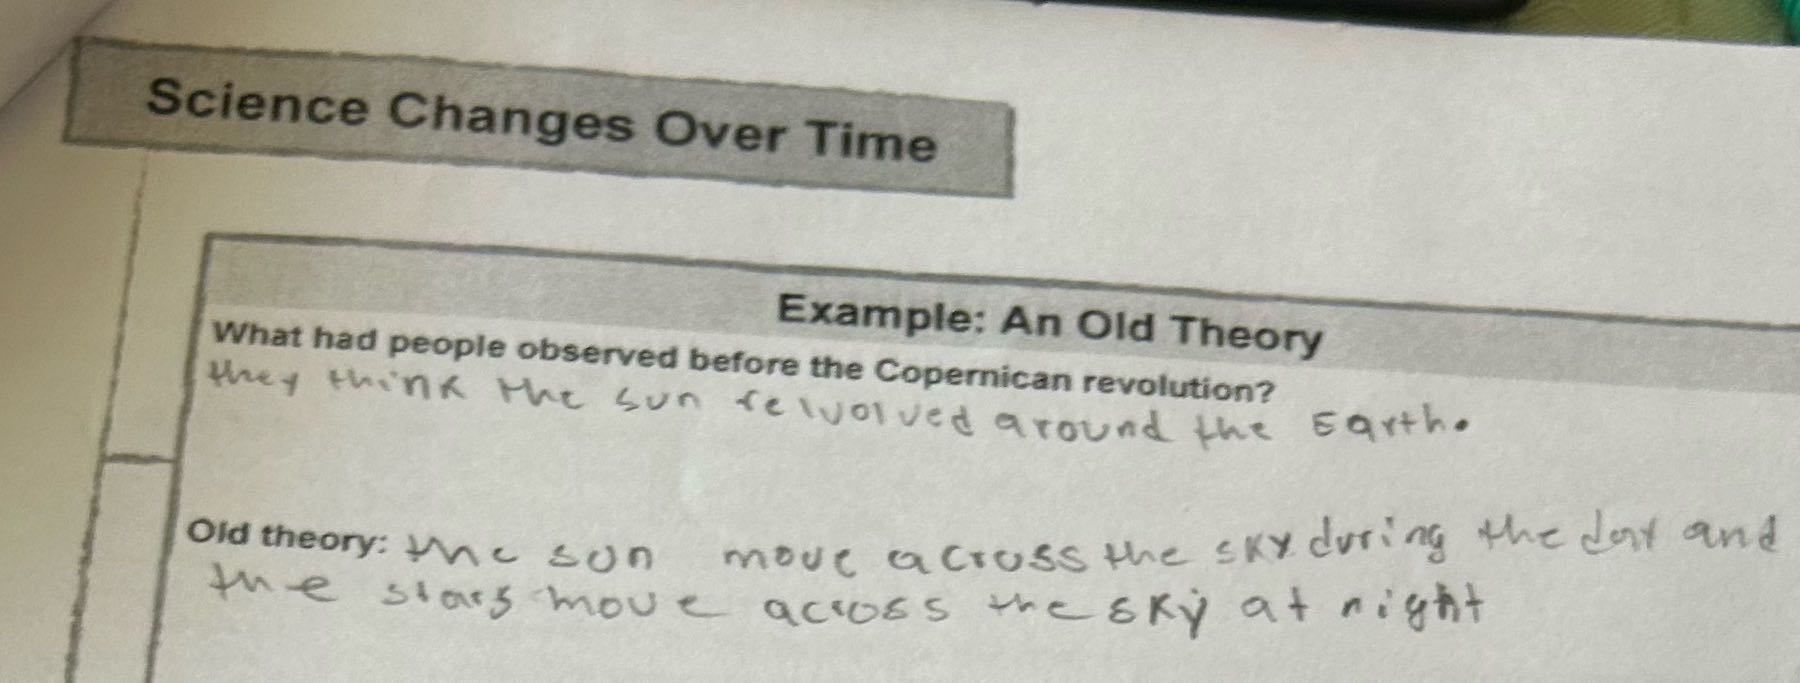 Science Changes Over Time
Example: An Old Theory
What had people observed before the Copernican revolution?
they think the sun relvolved around the Earth.
Old theory: the sun move across the sky during the day and
the stars move across the sky at night